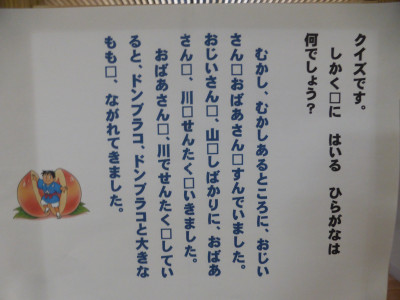 クイズです。
しかく□に　はいる　ひらがなは
何でしょう？
むかし、むかしあるところに、おじい
さん□おばあさん□すんでいました。
おじいさん□、山□しばかりに、おばあ
さん□、川□せんたく□いきました。
おばあさん□、川でせんたく□してい
ると、ドンブラコ、ドンブラコと大きな
もも□、ながれてきました。